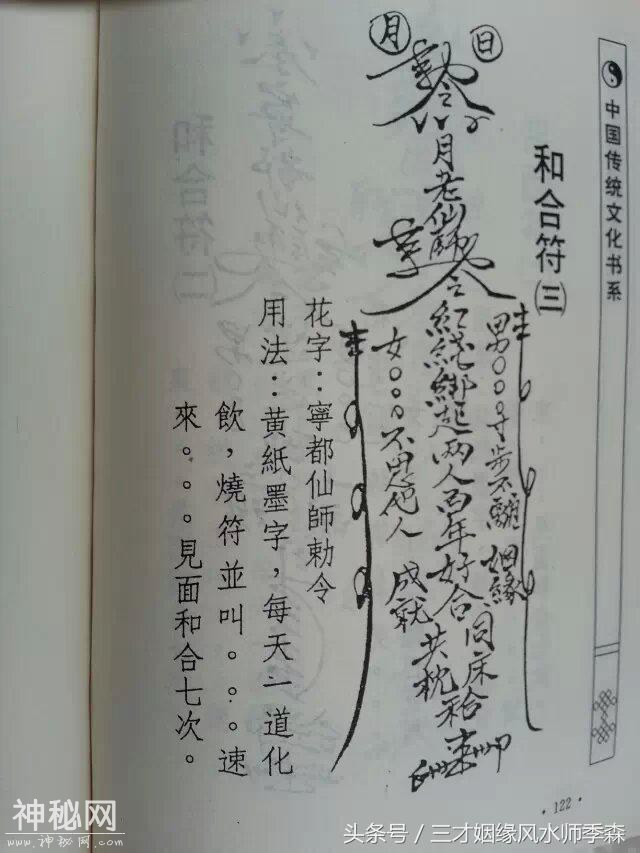 中国传统文化书系
和合符㈢
日
月
敕令
月老仙師
敕令
男○○○寸步不離
姻緣
紅线綁起兩人百年好合同床
共枕和合
女○○○不思他人
成就
花字：寧都仙師勅令
用法：黄紙墨字，每天一道化
飲，燒符並叫。。。速
來。。。見面和合七次。
·122·
神秘网
www.shenmiw.com
头条号／三才姻缘风水师季森